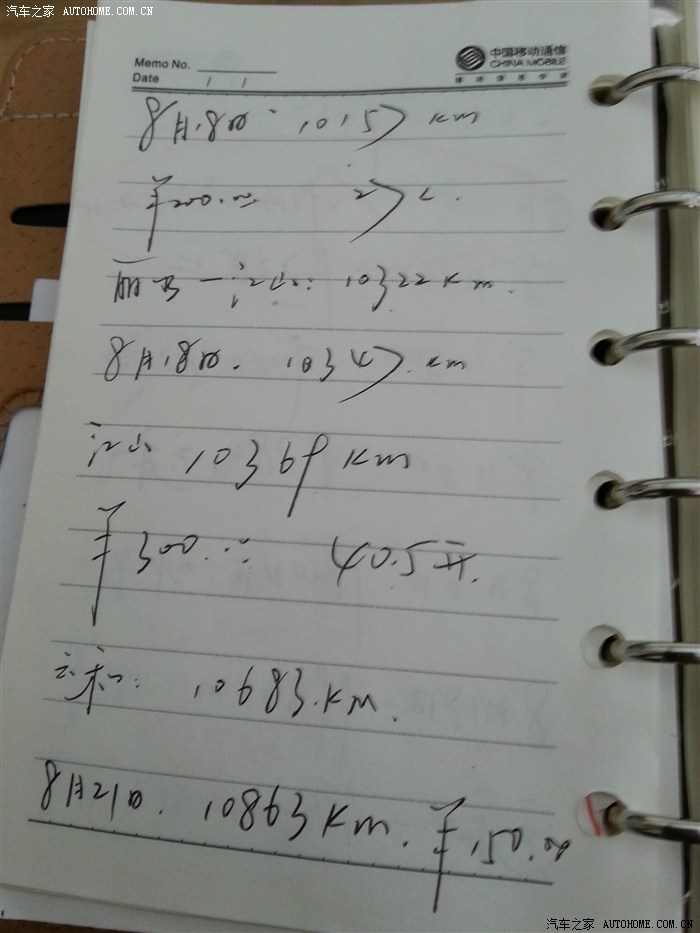 汽车之家 AUTOHOME.COM.CN
中国移动通信
CHINA MOBILE
Memo No.
Date / /
8月18日 10157 km
¥200.00 27L.
丽水—江山: 10322km.
8月18日. 10347.km
江山 10369 km
¥300.00 40.5升.
云和: 10683.km.
8月21日. 10863km. ¥150.00
汽车之家 AUTOHOME.COM.CN